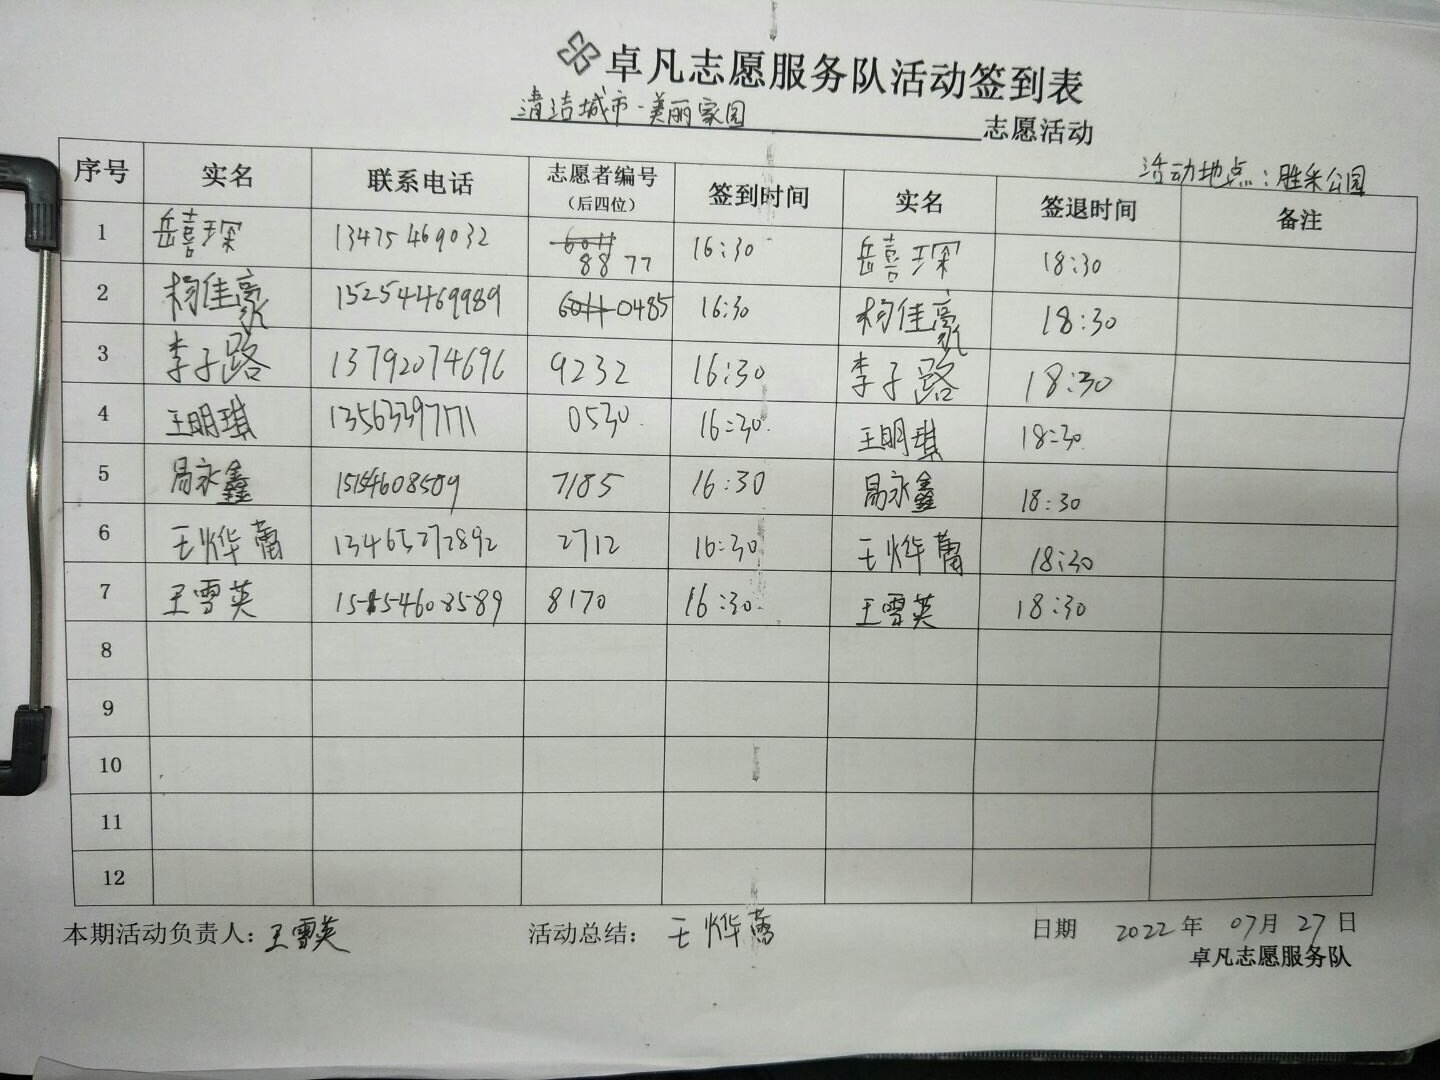 卓凡志愿服务队活动签到表
清洁城市·美丽家园 志愿活动
活动地点：胜采公园
序号 实名 联系电话 志愿者编号（后四位） 签到时间 实名 签退时间 备注
1 岳禧琛 13475469032 6011 8877 16:30 岳禧琛 18:30
2 杨佳豪 15254469989 6011 0485 16:30 杨佳豪 18:30
3 李子路 13792074696 9232 16:30 李子路 18:30
4 王明琪 13563397171 0530 16:30 王明琪 18:30
5 永鑫 15154608589 7185 16:30 永鑫 18:30
6 王烨 13465272892 2712 16:30 王烨 18:30
7 王雪英 15154608589 8170 16:30 王雪英 18:30
8
9
10
11
12
本期活动负责人：王雪英 活动总结：王烨 日期 2022年07月27日
卓凡志愿服务队